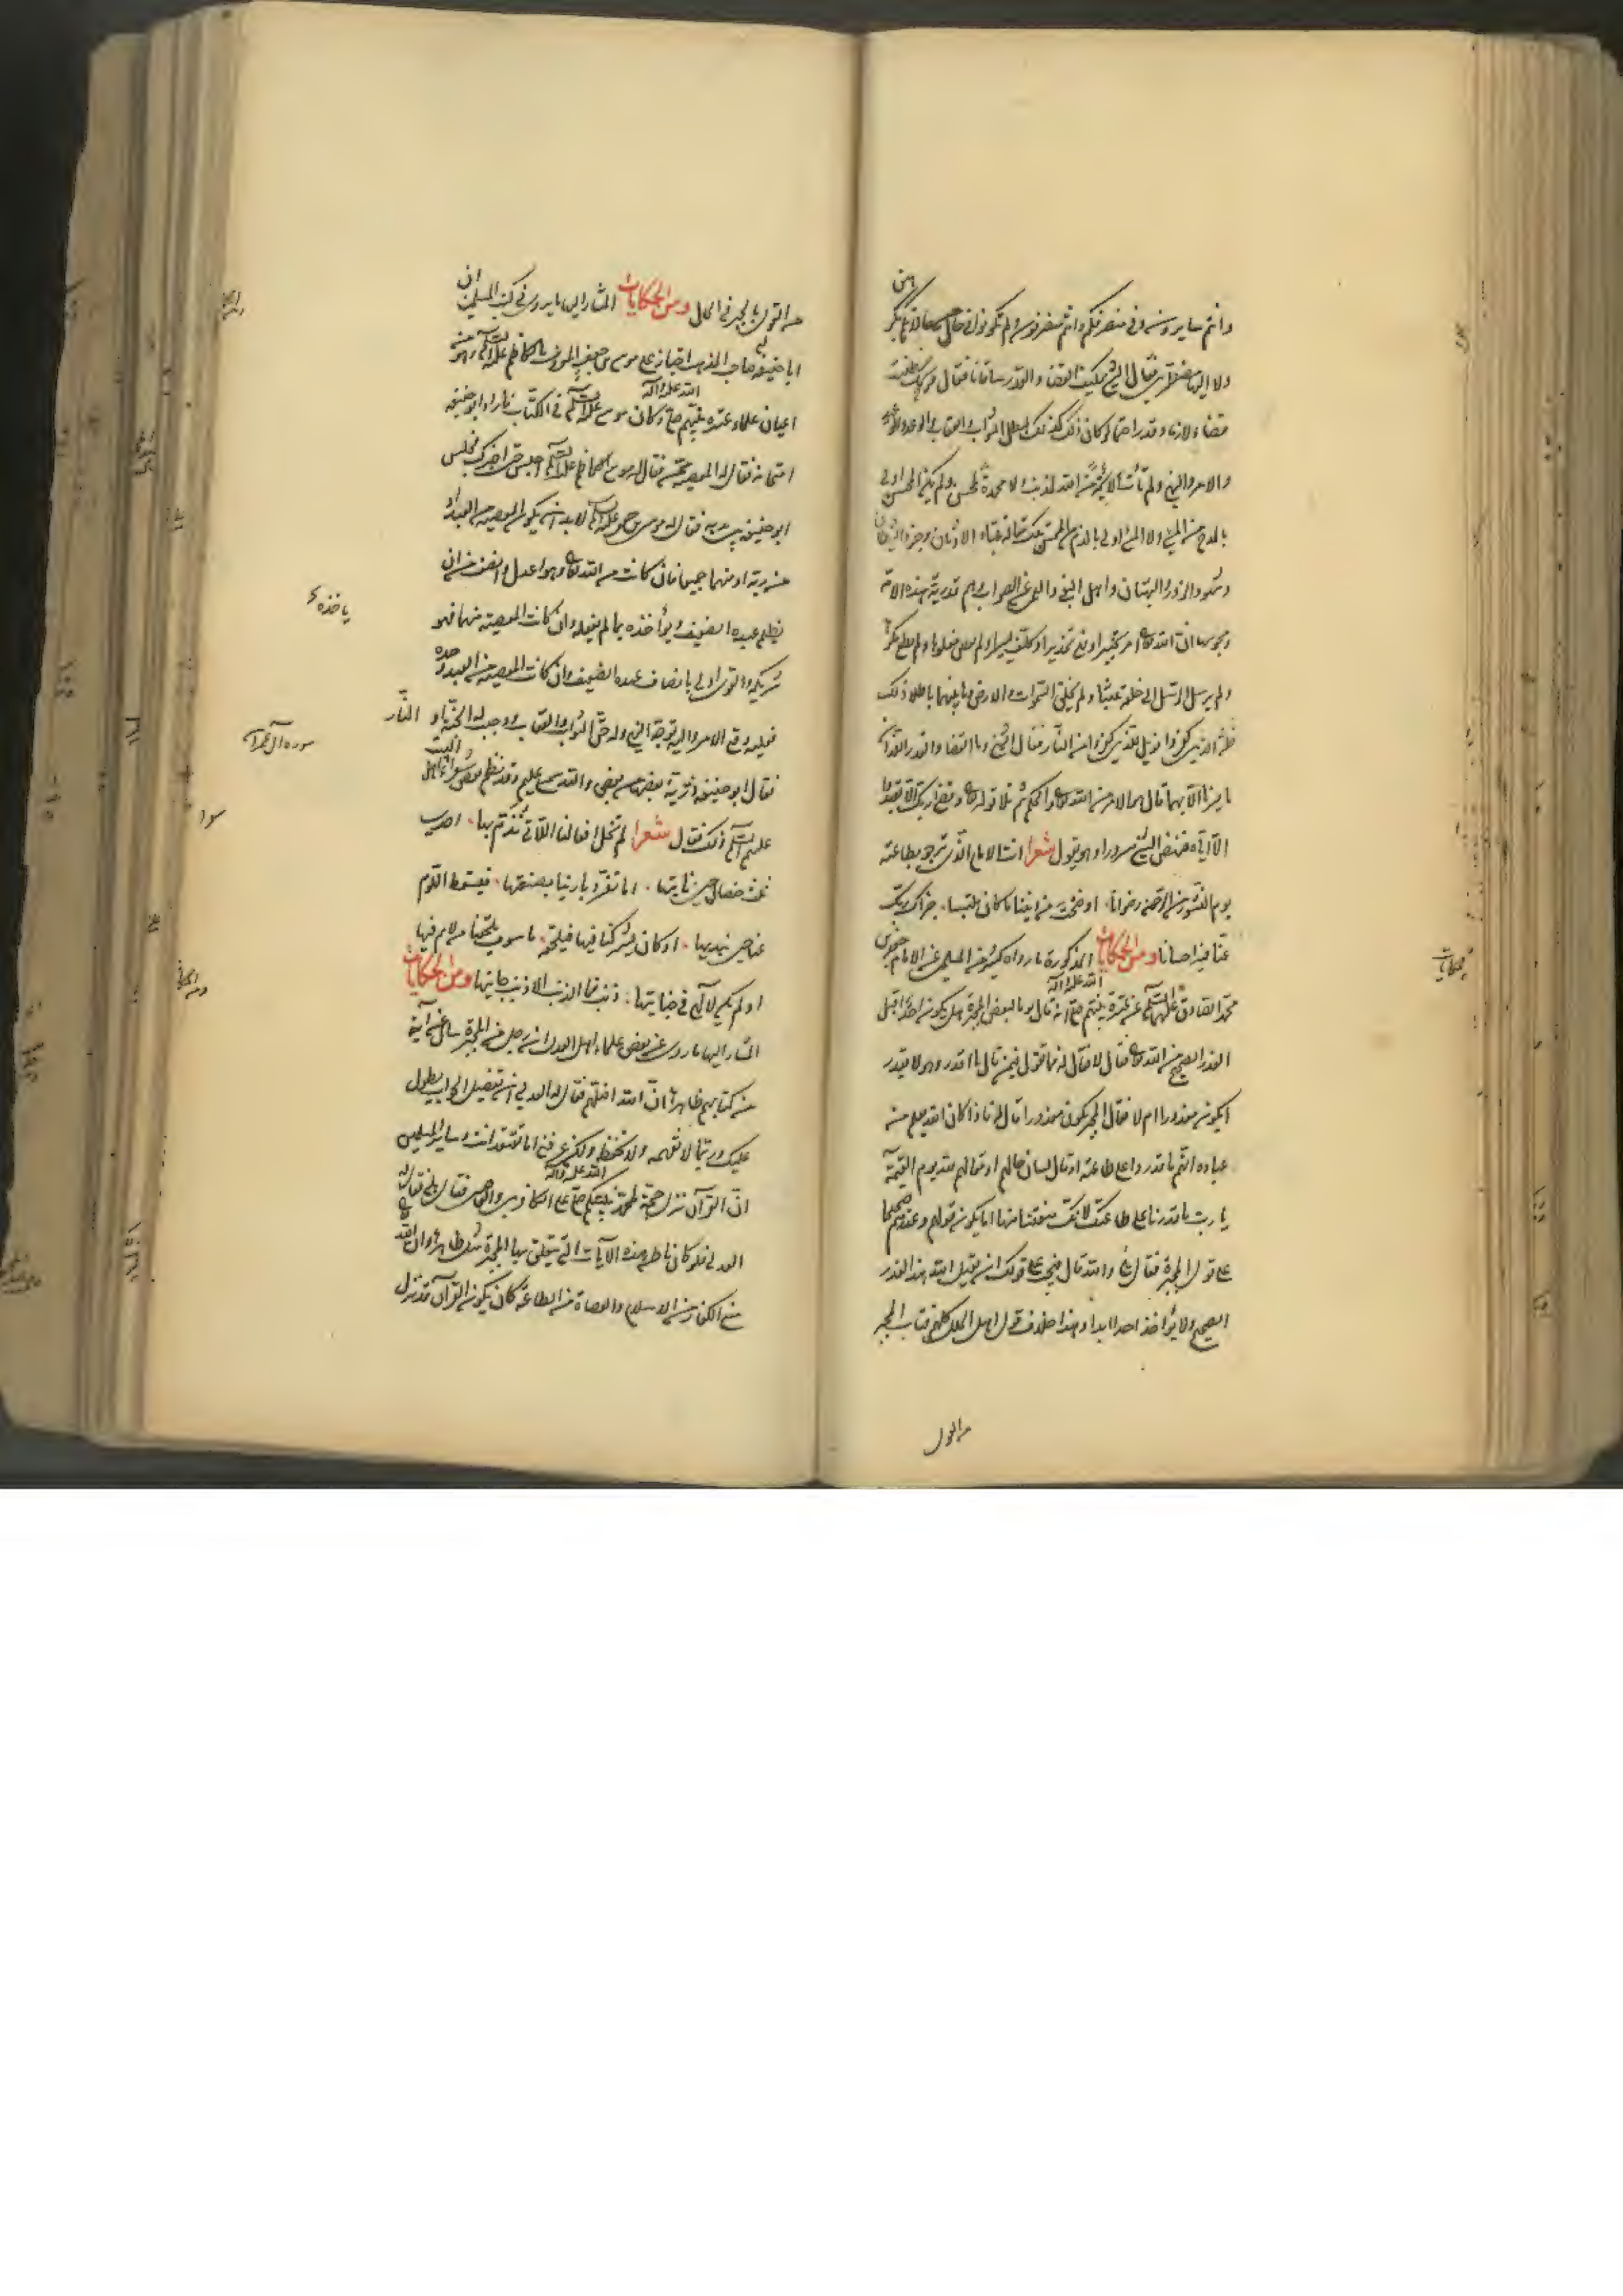 وانتم سايرون وفي منصرفكم وانتم منصرفون ولم تكونوا في حال من حالاتكم مكرهين
ولا اليها مضطرين فقال الشيخ كيف القضاء والقدر ساقانا فقال ويحك لعلك ظننت
قضاء لازما وقدرا حتما لو كان ذلك كذلك لبطل الثواب والعقاب والوعد والوعيد
والامر والنهي ولم تأت لائمة من الله لمذنب ولا محمدة لمحسن ولم يكن المحسن اولى
بالمدح من المسيء ولا المسيء اولى بالذم من المحسن تلك مقالة عباد الاوثان وجنود الشيطان
وشهود الزور والبهتان واهل البغي والعمى عن الصواب وهم قدرية هذه الامة
ومجوسها ان الله تعالى امر تخييرا ونهى تحذيرا وكلف يسيرا ولم يعص مغلوبا ولم يطع مكرها
ولم يرسل الرسل الى خلقه عبثا ولم يخلق السموات والارض وما بينهما باطلا ذلك
ظن الذين كفروا فويل للذين كفروا من النار فقال الشيخ وما القضاء والقدر اللذان
ما سرنا الا بهما قال هو الامر من الله تعالى والحكم ثم تلا قوله تعالى وقضى ربك الا تعبدوا
الا اياه فنهض الشيخ مسرورا وهو يقول شعرا انت الامام الذي نرجو بطاعته
يوم النشور من الرحمن رضوانا اوضحت من ديننا ما كان ملتبسا جزاك ربك
عنا فيه احسانا ومن الحكايات المذكورة ما رواه كثير من المسلمين عن الامام جعفر بن
محمد الصادق عليهما السلام عن عترة نبيهم صلى الله عليه وآله انه قال يوما لبعض المجبرة هل يكون احد اقبل
للعذر الصحيح من الله تعالى فقال لا فقال له فما تقول فيمن قال ما اقدر وهو لا يقدر
ايكون معذورا ام لا فقال المجبر يكون معذورا قال له فاذا كان الله يعلم من
عباده انهم ما قدروا على طاعته وقال لسان حالهم او مقالهم لله يوم القيمة
يا رب ما قدرنا على طاعتك لانك منعتنا منها اما يكون قولهم وعذرهم صحيحا
على قول المجبرة فقال بلى والله قال فيجب على قولك ان يقبل الله هذا العذر
الصحيح ولا يؤاخذ احدا ابدا وهذا خلاف قول اهل الملل كلهم فتاب المجبر
من القول
من القول بالجبر في الحال ومن الحكايات المشار اليها ما يروى في كتب المسلمين ان
ابا حنيفة صاحب المذهب اجتاز على موسى بن جعفر المعروف بالكاظم عليه السلام وهو من
اعيان علماء عترة نبيهم صلى الله عليه وآله وكان موسى عليه السلام في الكتاب فاراد ابو حنيفة
امتحانه فقال له المعصية ممن فقال له موسى الكاظم عليه السلام اجلس حتى اخبرك فجلس
ابو حنيفة بين يديه فقال له موسى بن جعفر عليه السلام لا بد ان يكون المعصية من العبد او
من ربه او منهما جميعا فان كانت من الله تعالى فهو اعدل وانصف من ان
يظلم عبده الضعيف ويؤاخذه بما لم يفعله وان كانت المعصية منهما فهو
شريكه والقوي اولى بانصاف عبده الضعيف وان كانت المعصية من العبد وحده
فعليه وقع الامر واليه توجه النهي وله حق الثواب والعقاب ووجبت له الجنة او النار
فقال ابو حنيفة ذرية بعضها من بعض والله سميع عليم وقد نظم بعض شعراء اهل البيت
عليهم السلام ذلك فقال شعرا لم تخل افعالنا اللاتي نذم بها احدى
ثلث خصال حين ناتيها اما تفرد بارينا بصنعتها فيسقط اللوم
عنا حين نبديها او كان يشركنا فيها فيلحقه ما سوف يلحقنا من لائم فيها
او لم يكن لالهي في جنايتها ذنب فما الذنب الا ذنب جانيها ومن الحكايات
المشار اليها ما روي عن بعض علماء اهل العدل ان رجلا من المجبرة سأله عن آية
من كتابهم ظاهرها ان الله اضلهم فقال له العدلي ان تفصيل الجواب يطول
عليك وربما لا تفهمه ولا تحفظه ولكن عرفني اما تعتقد انت وساير المسلمين
ان القرآن نزل حجة لمحمد نبيكم صلى الله عليه وآله على الكافرين والعاصين فقال بلى فقال له
العدلي فلو كان باطن هذه الآيات التي يتعلق بها المجبرة مثل ظاهرها وان الله تعالى
منع الكفار من الاسلام والعصاة من الطاعة كان يكون القرآن قد نزل
ياخذه
سورة آل عمران
سوا